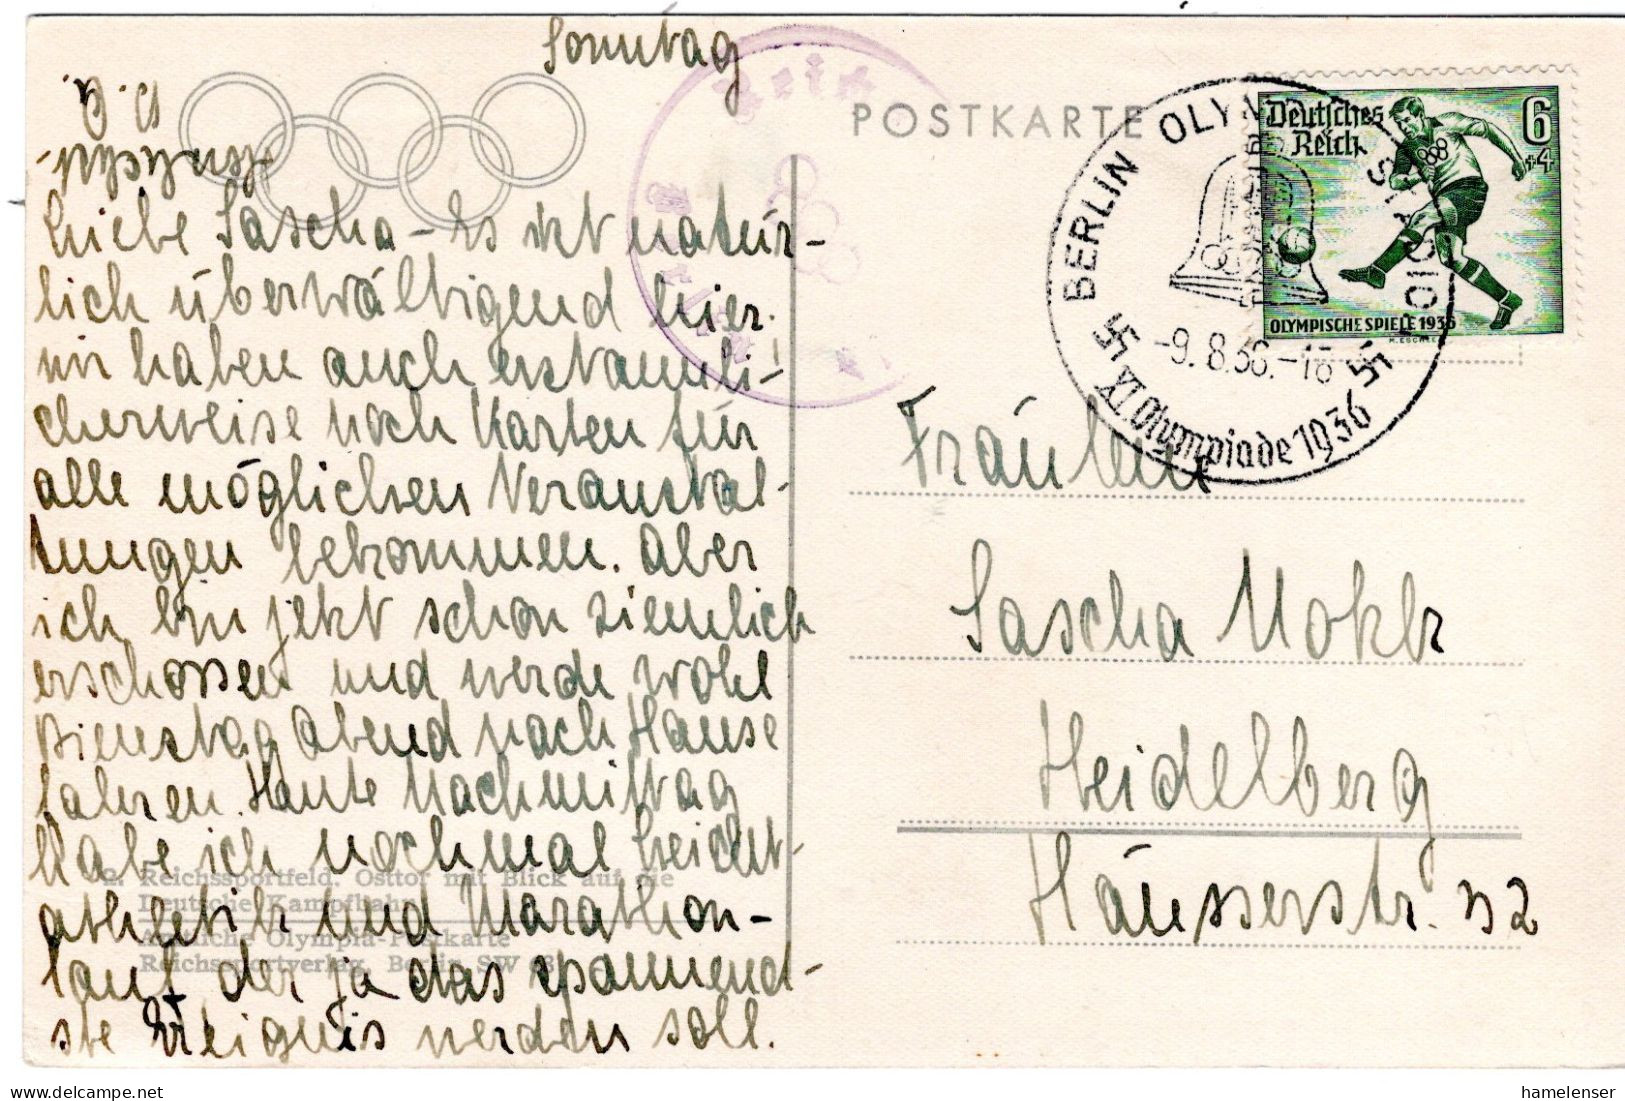 Sonntag
Liebe Sascha – Es ist natür-
lich überwältigend hier.
Wir haben auch erstaunli-
cherweise noch Karten für
alle möglichen Veranstal-
tungen bekommen. Aber
ich bin jetzt schon ziemlich
erschossen und werde wohl
Dienstag Abend nach Hause
fahren. Heute Nachmittag
habe ich nochmal Leicht-
athletik und Marathon-
lauf der ja das spannend-
ste Ereignis werden soll.
2. Reichssportfeld. Osttor mit Blick auf die
Deutsche Kampfbahn
Amtliche Olympia-Postkarte
Reichssportverlag, Berlin SW 68
POSTKARTE
BERLIN OLYMPIA-STADION
-9.8.36.-18
XI. Olympiade 1936
Deutsches
Reich
6
+4
OLYMPISCHE SPIELE 1936
Fräulein
Sascha Mokk
Heidelberg
Häusserstr. 32
hamelenser